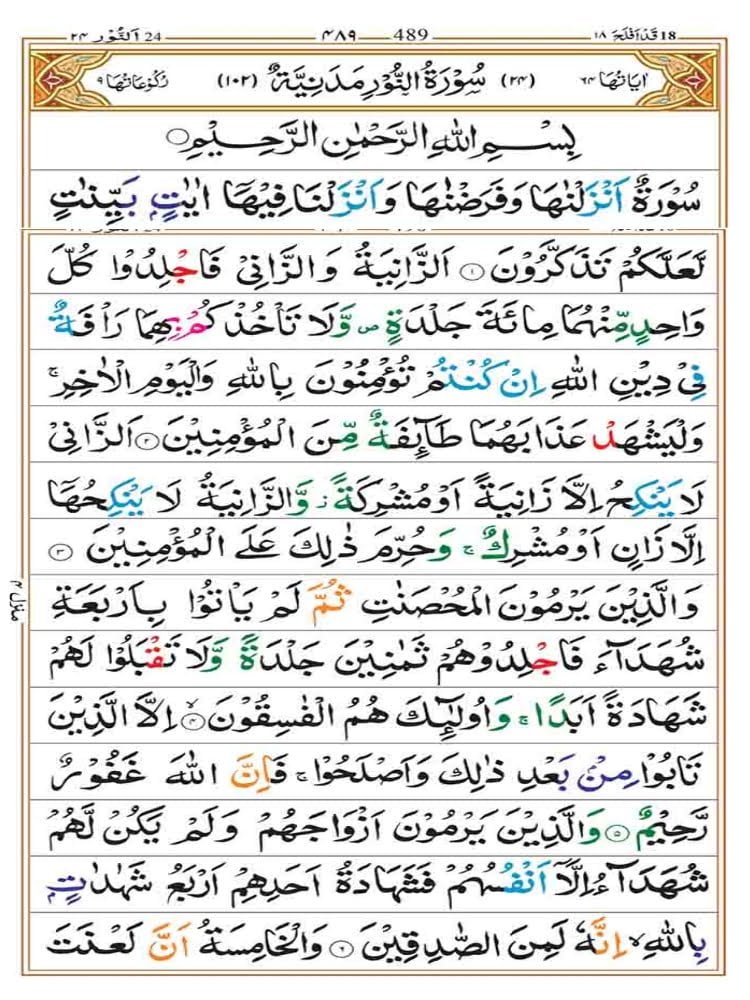 18 قد افلح ۱۸ 489 ۴۸۹ 24 النور ۲۴
اٰیاتها ۶۴ (۲۴) سُوْرَةُ النُّوْرِ مَدَنِيَّةٌ (۱۰۲) رُكُوْعَاتُهَا ۹
بِسْمِ اللهِ الرَّحْمٰنِ الرَّحِيْمِ
سُوْرَةٌ اَنْزَلْنٰهَا وَفَرَضْنٰهَا وَاَنْزَلْنَا فِيْهَاۤ اٰيٰتٍۭ بَيِّنٰتٍ
لَّعَلَّكُمْ تَذَكَّرُوْنَ ۱ اَلزَّانِيَةُ وَالزَّانِيْ فَاجْلِدُوْا كُلَّ
وَاحِدٍ مِّنْهُمَا مِائَةَ جَلْدَةٍ ۪ وَّلَا تَاْخُذْكُمْ بِهِمَا رَاْفَةٌ
فِيْ دِيْنِ اللهِ اِنْ كُنْتُمْ تُؤْمِنُوْنَ بِاللهِ وَالْيَوْمِ الْاٰخِرِ ۚ
وَلْيَشْهَدْ عَذَابَهُمَا طَآئِفَةٌ مِّنَ الْمُؤْمِنِيْنَ ۲ اَلزَّانِيْ
لَا يَنْكِحُ اِلَّا زَانِيَةً اَوْ مُشْرِكَةً ز وَّالزَّانِيَةُ لَا يَنْكِحُهَاۤ
اِلَّا زَانٍ اَوْ مُشْرِكٌ ۚ وَحُرِّمَ ذٰلِكَ عَلَى الْمُؤْمِنِيْنَ ۳
وَالَّذِيْنَ يَرْمُوْنَ الْمُحْصَنٰتِ ثُمَّ لَمْ يَاْتُوْا بِاَرْبَعَةِ
شُهَدَآءَ فَاجْلِدُوْهُمْ ثَمٰنِيْنَ جَلْدَةً وَّلَا تَقْبَلُوْا لَهُمْ
شَهَادَةً اَبَدًا ۚ وَاُولٰٓئِكَ هُمُ الْفٰسِقُوْنَ ۴ اِلَّا الَّذِيْنَ
تَابُوْا مِنْۢ بَعْدِ ذٰلِكَ وَاَصْلَحُوْا ۚ فَاِنَّ اللهَ غَفُوْرٌ
رَّحِيْمٌ ۵ وَالَّذِيْنَ يَرْمُوْنَ اَزْوَاجَهُمْ وَلَمْ يَكُنْ لَّهُمْ
شُهَدَآءُ اِلَّاۤ اَنْفُسُهُمْ فَشَهَادَةُ اَحَدِهِمْ اَرْبَعُ شَهٰدٰتٍۭ
بِاللهِ ۙ اِنَّهٗ لَمِنَ الصّٰدِقِيْنَ ۶ وَالْخَامِسَةُ اَنَّ لَعْنَتَ
منزل ۴